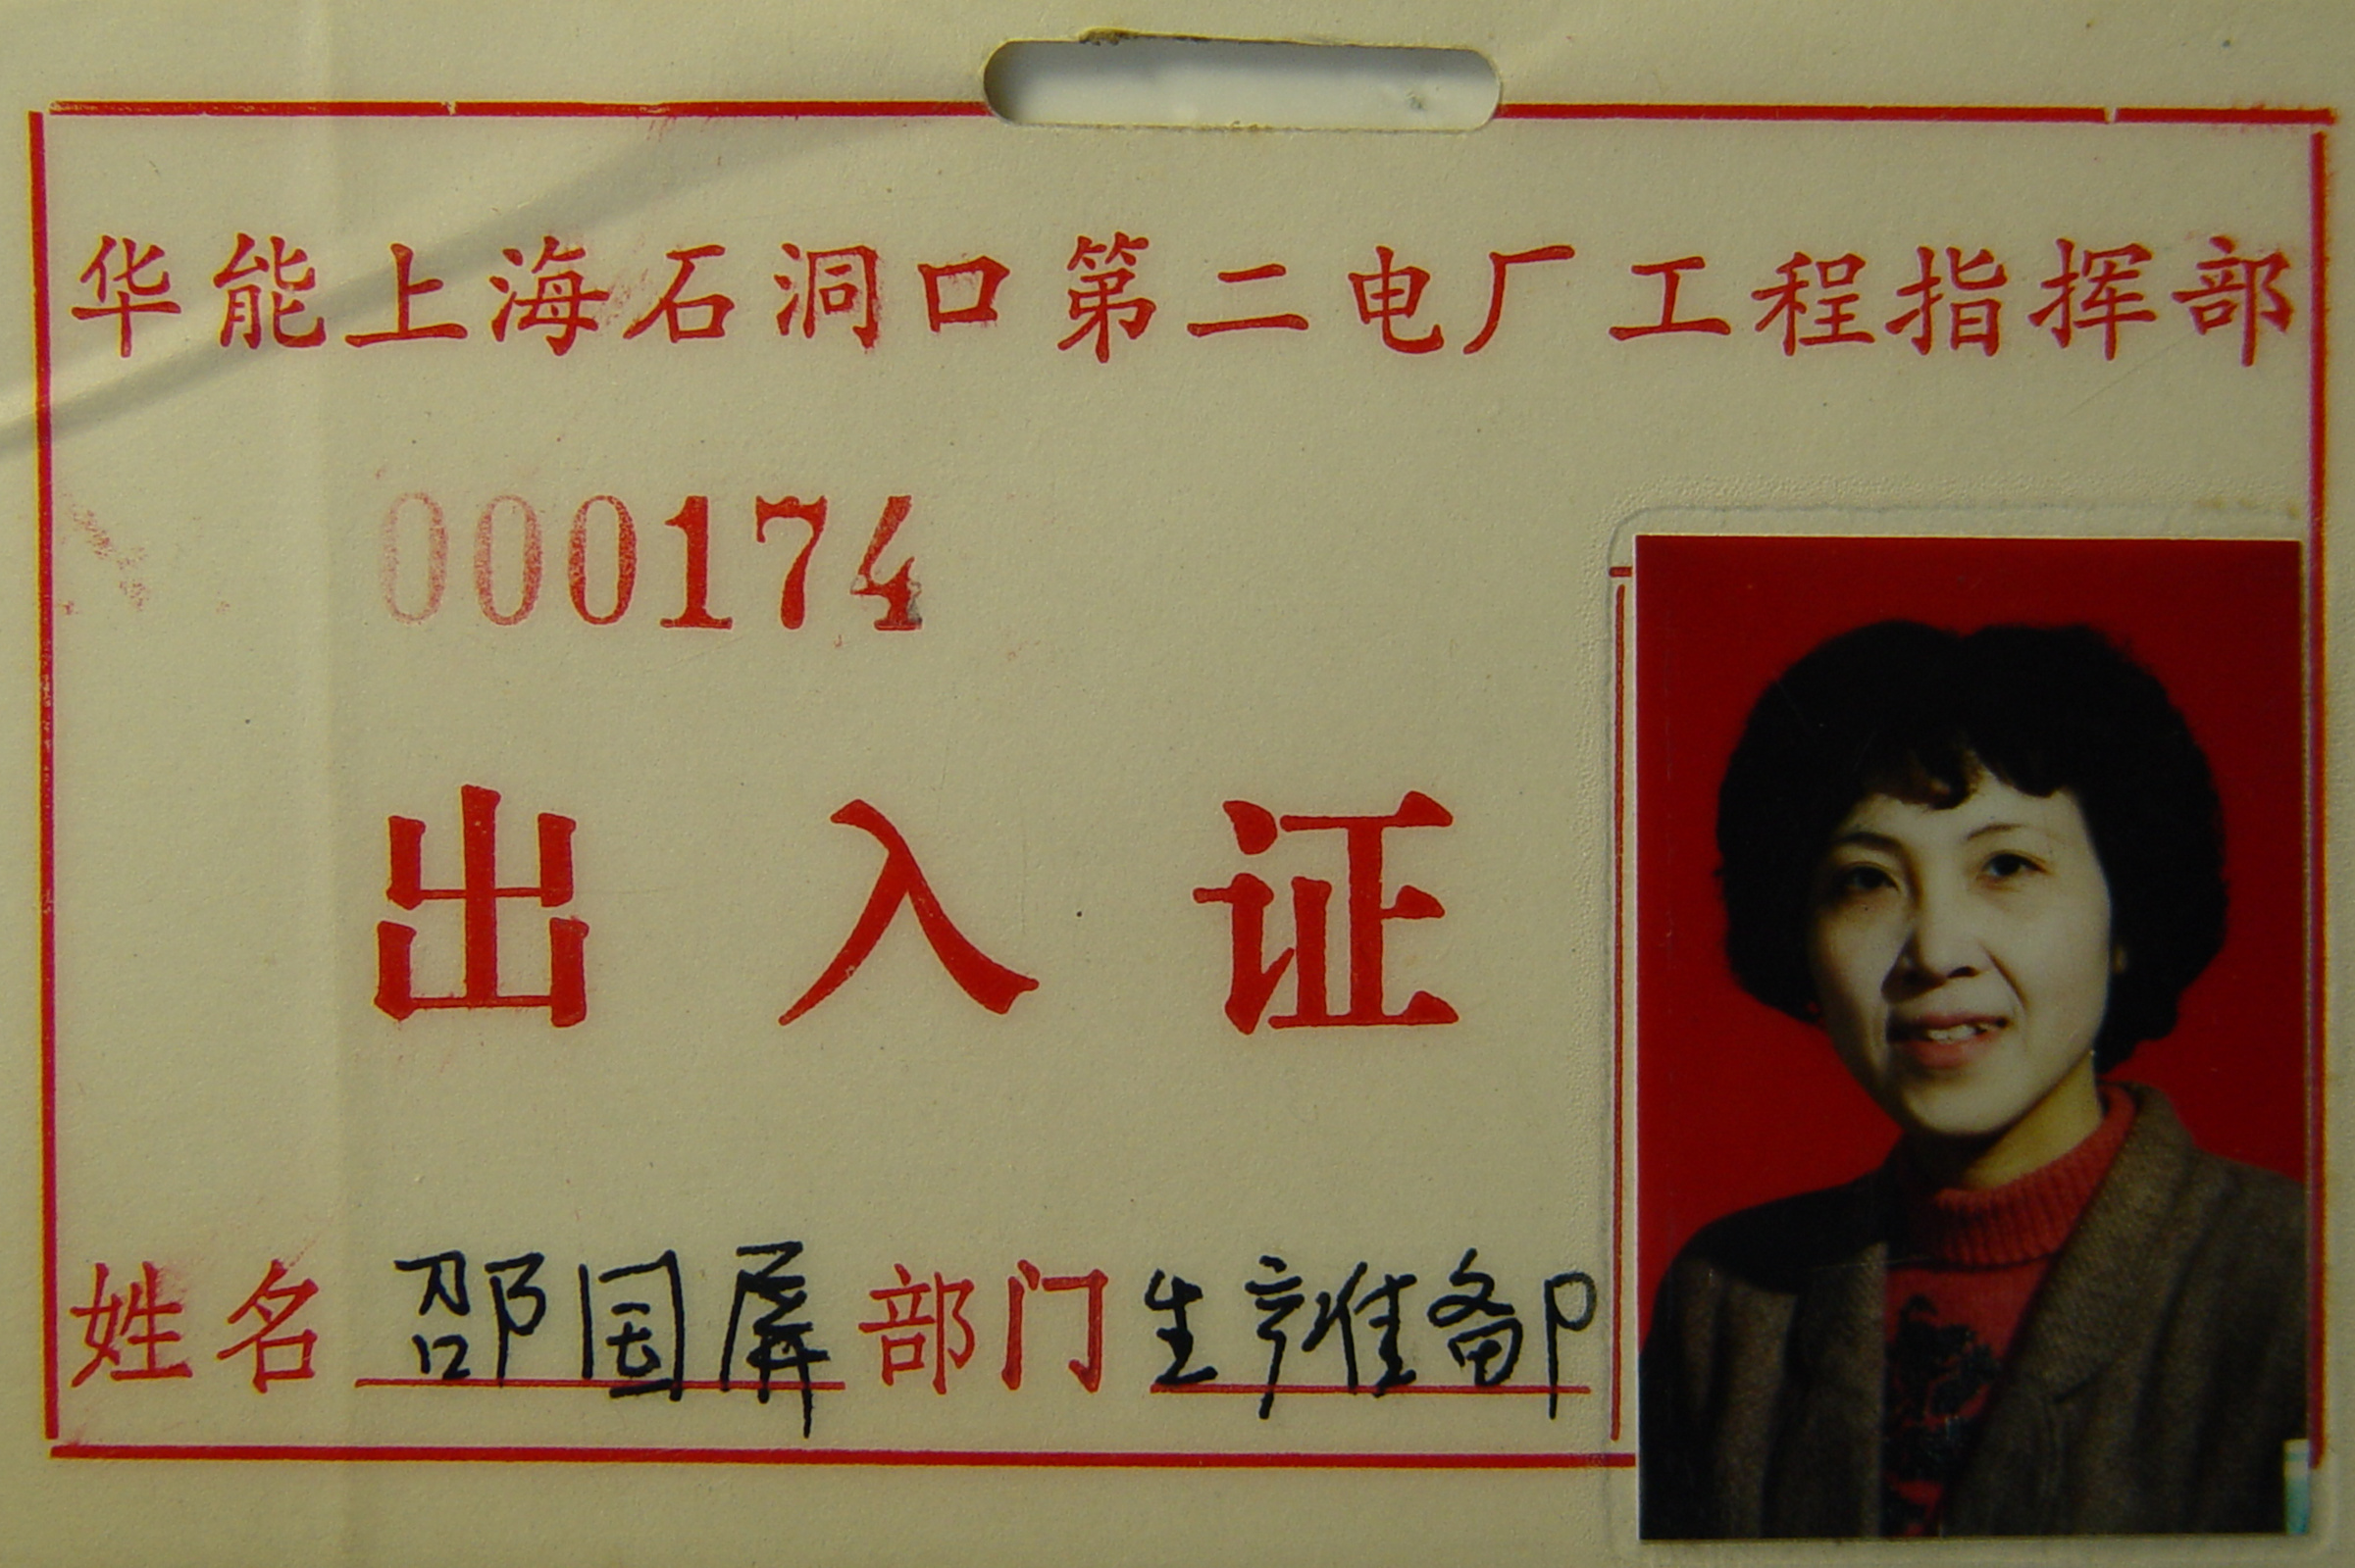 华能上海石洞口第二电厂工程指挥部
000174
出入证
姓名 邵国屏 部门 生产准备部